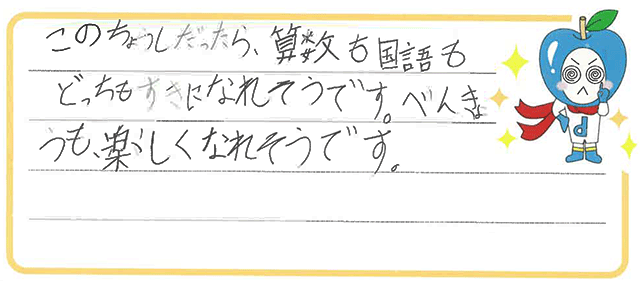 このちょうしだったら、算数も国語も
どっちもすきになれそうです。べんきょ
うも、楽しくなれそうです。
d